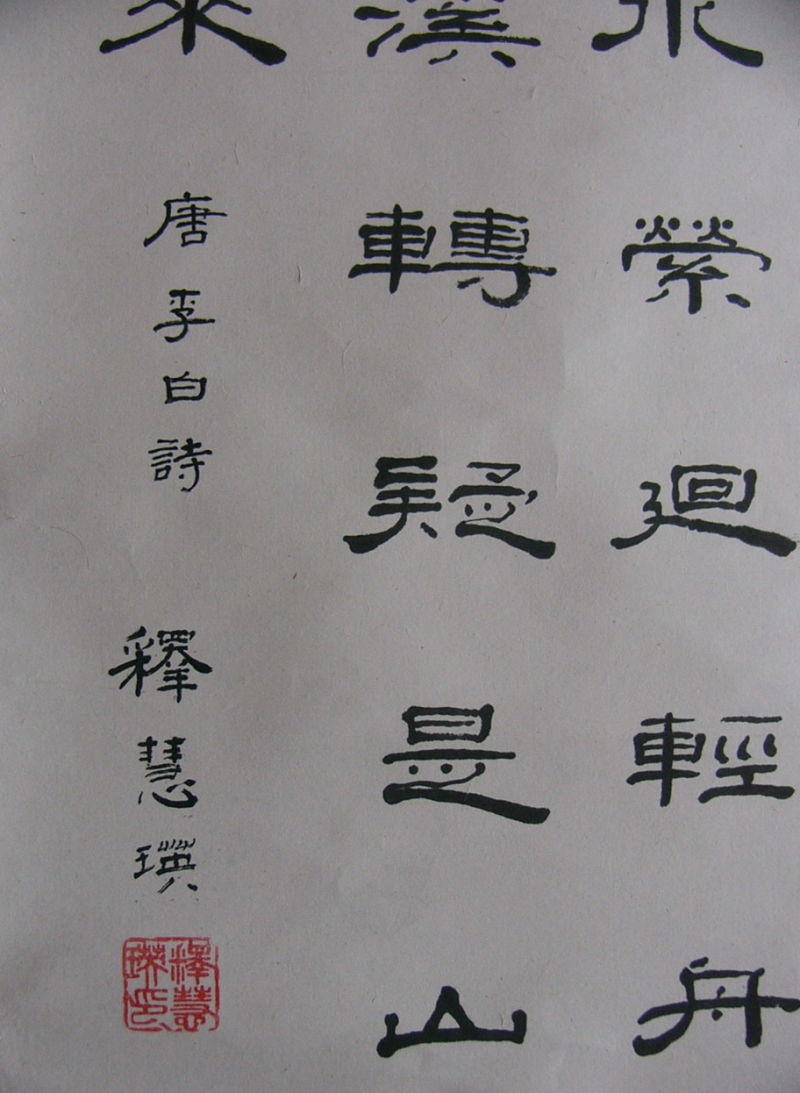 水縈廻輕舟
溪轉疑是山
來
唐李白詩 釋慧瑛
釋慧瑛印